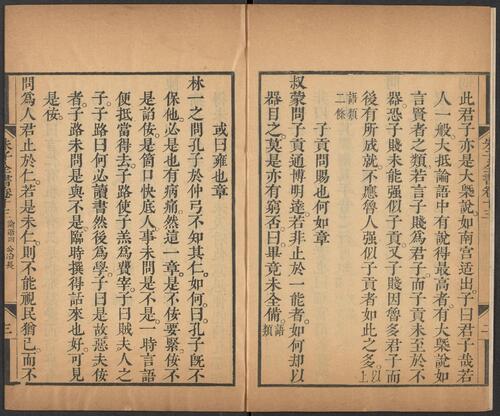 此君子亦是大槩說如南宫适出子曰君子哉若
人一般大抵論語中有說得最高者有大槩說如
言賢者之類若言子賤為君子而子貢未至於不
器恐子賤未能强似子貢又子賤因魯多君子而
後有所成就不應魯人强似子貢者如此之多。以上
語類
二條
子貢問賜也何如章
叔蒙問子貢通博明達若非止於一能者如何却以
器目之莫是亦有窮否曰畢竟未全備。語類
或曰雍也章
林一之問孔子於仲弓不知其仁如何曰孔子旣不
保他必是也有病痛然這一章是不佞要緊佞不
是諂佞是箇口快底人事未問是不是一時言語
便抵當得去子路使子羔為費宰子曰賊夫人之
子子路曰何必讀書然後為學子曰是故惡夫佞
者子路未問是與不是臨時撰得話來也好可見
是佞。
問為人君止於仁若是未仁則不能視民猶已而不
朱子全書卷十三
論語四 公冶長
三
朱子全書卷十三
二